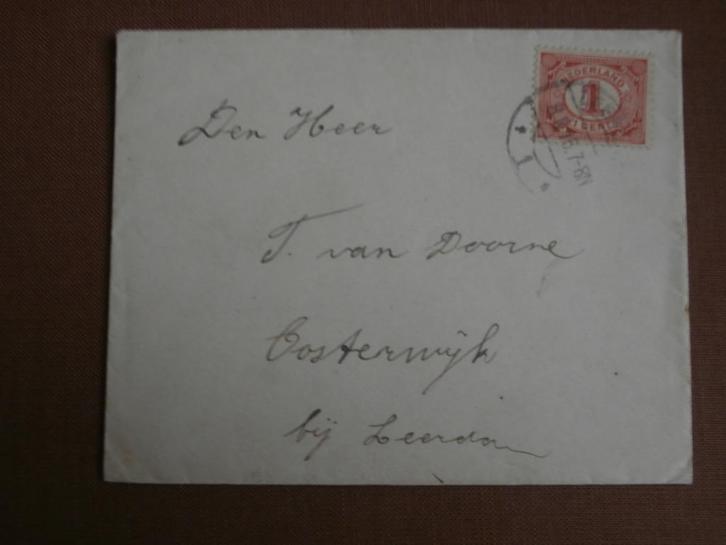 NEDERLAND
1
1 CENT
6.7-8N
1
Den Heer
T. van Doorne
Oosterwijk
bij Leerdam